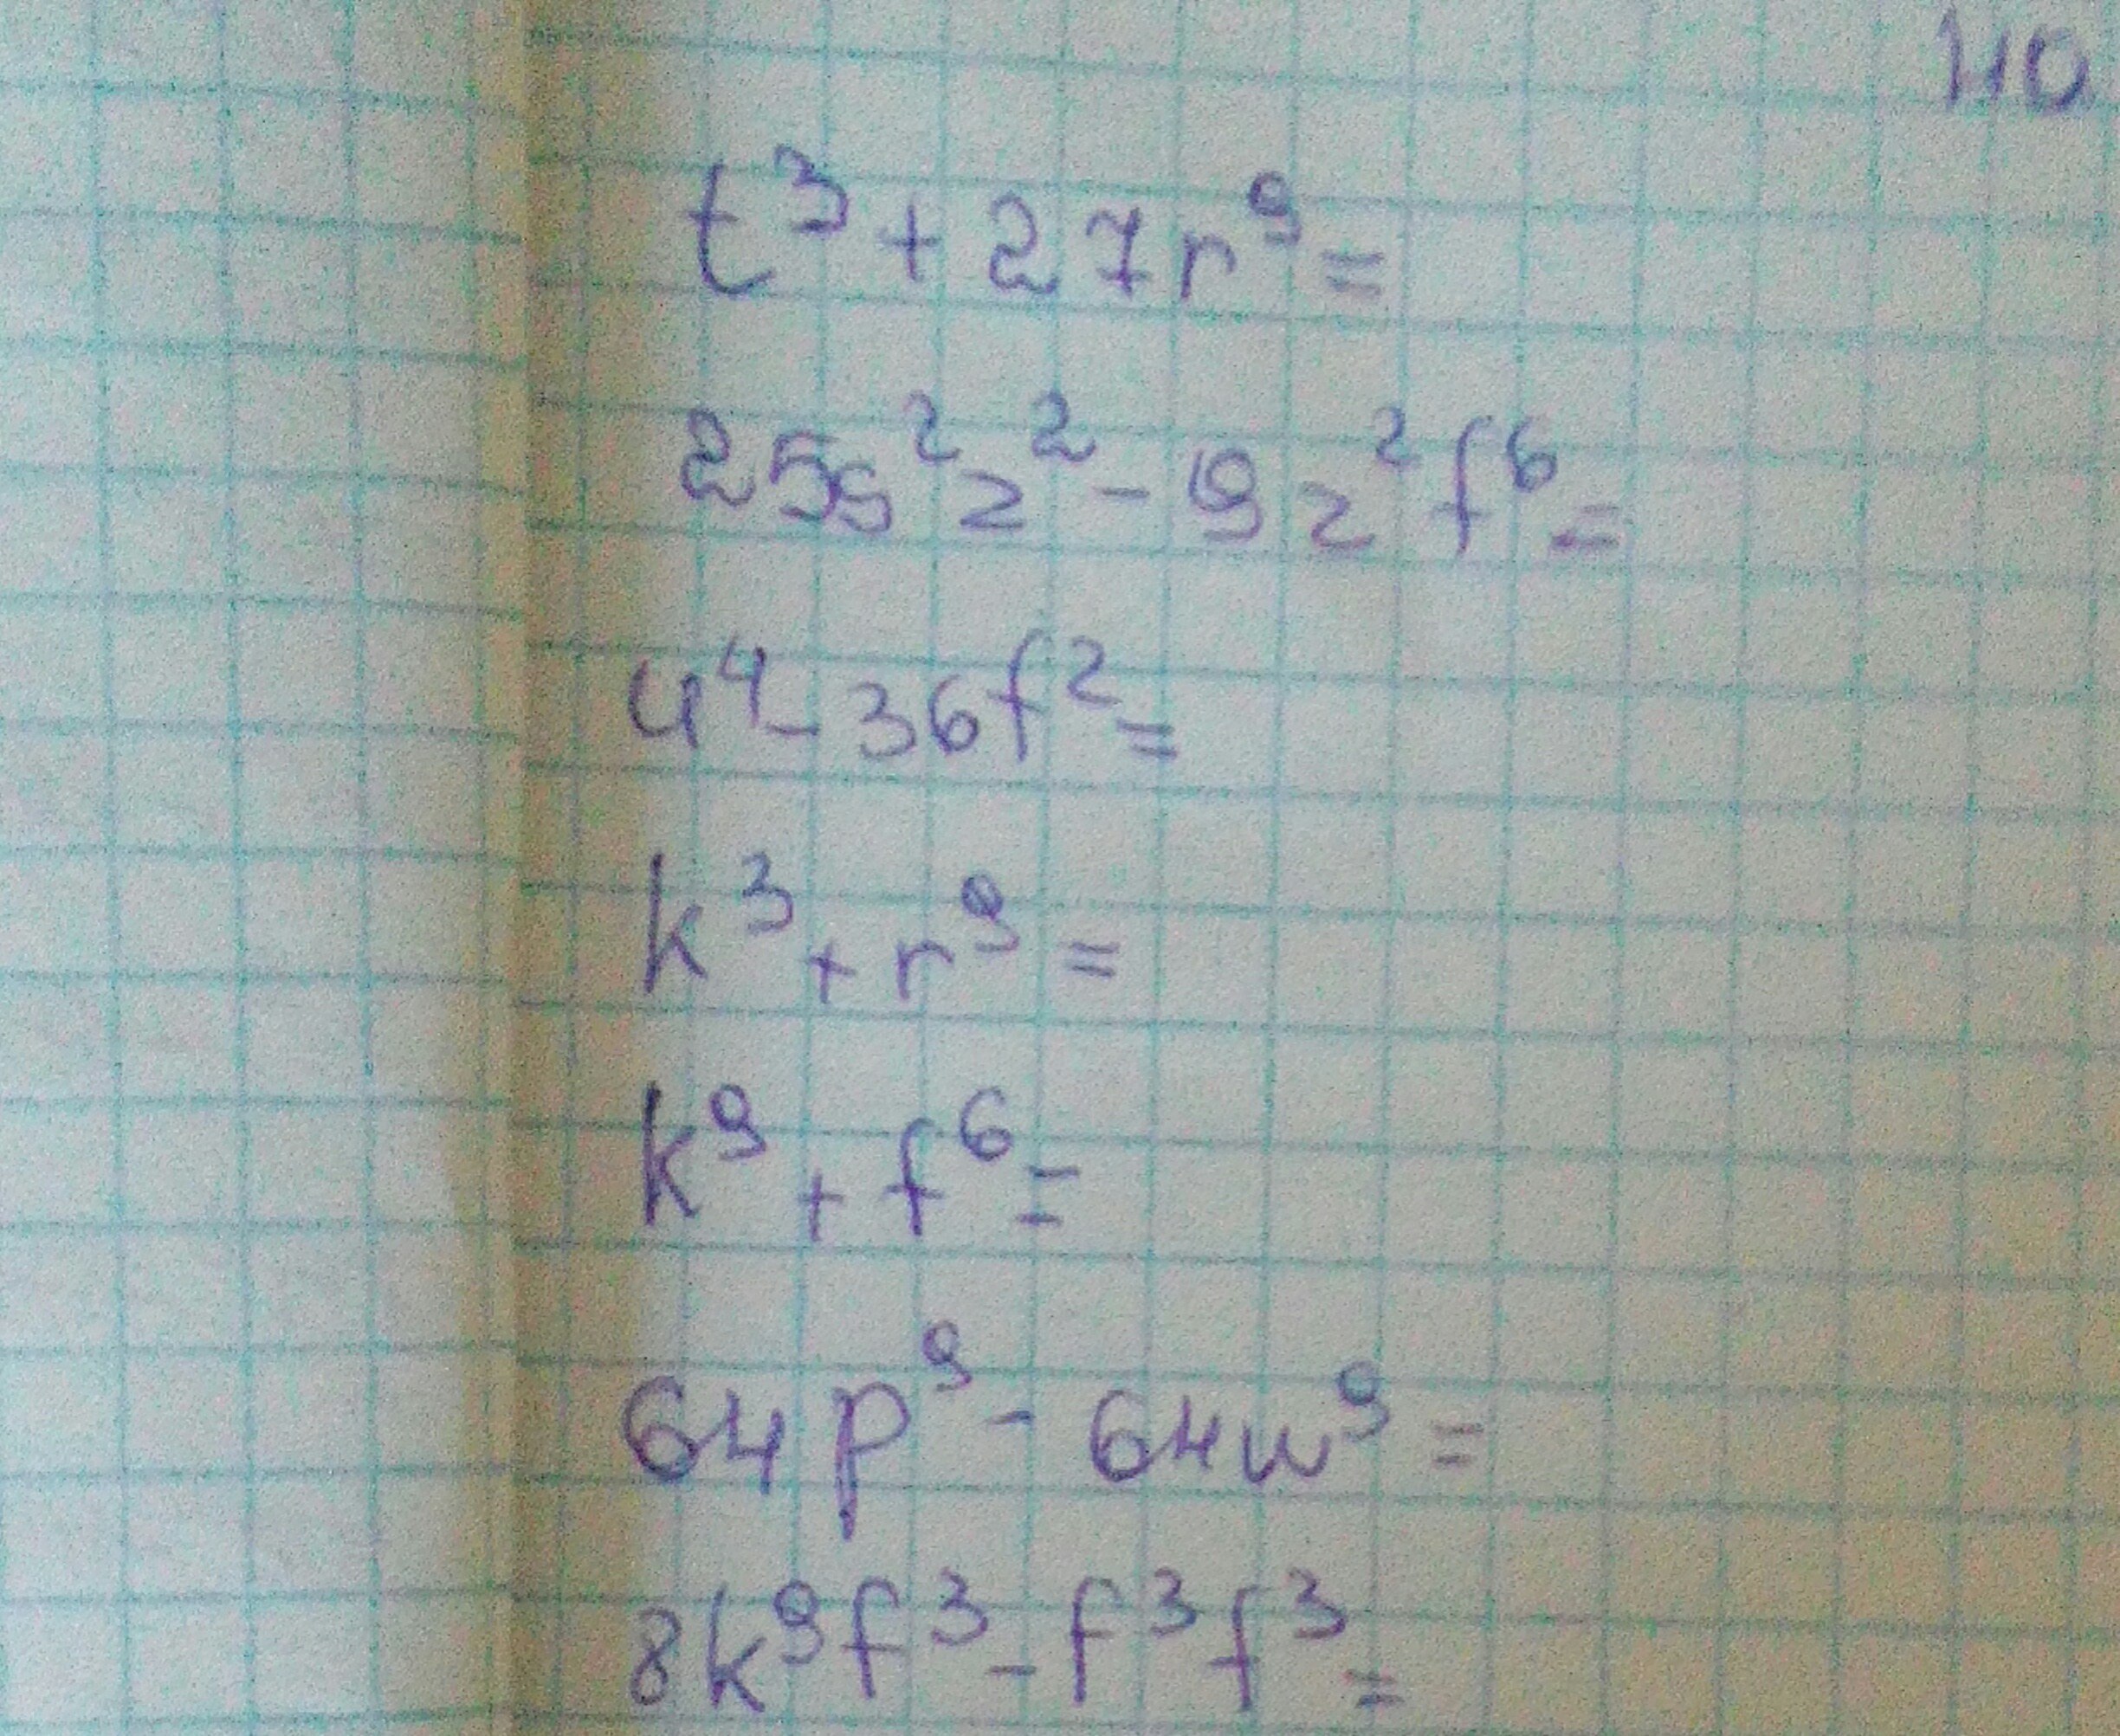 40
t³ + 27r⁹ =
25s²z² - 9z²f⁶ =
u⁴ - 36f² =
k³ + r⁹ =
k⁹ + f⁶ =
64p⁹ - 64w⁹ =
8k⁹f³ - f³f³ =